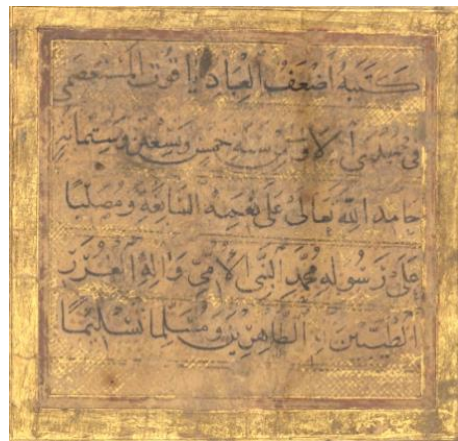 كَتَبَهُ أَضْعَفُ العِبَادِ ياقوت المستعصمي
في جُمَدَى الاولى سنة خمس وتسعين وستمائة
حَامِدًا لِلّٰهِ تَعَالَى عَلَى نِعَمِهِ السَّابِغَةِ وَمُصَلِّيًا
عَلَى رَسُولِهِ مُحَمَّدٍ النَّبِيِّ الأُمِّيِّ وَآلِهِ الغُرَرِ
الطَّيِّبِينَ الطَّاهِرِينَ وَمُسَلِّمًا تَسْلِيمًا